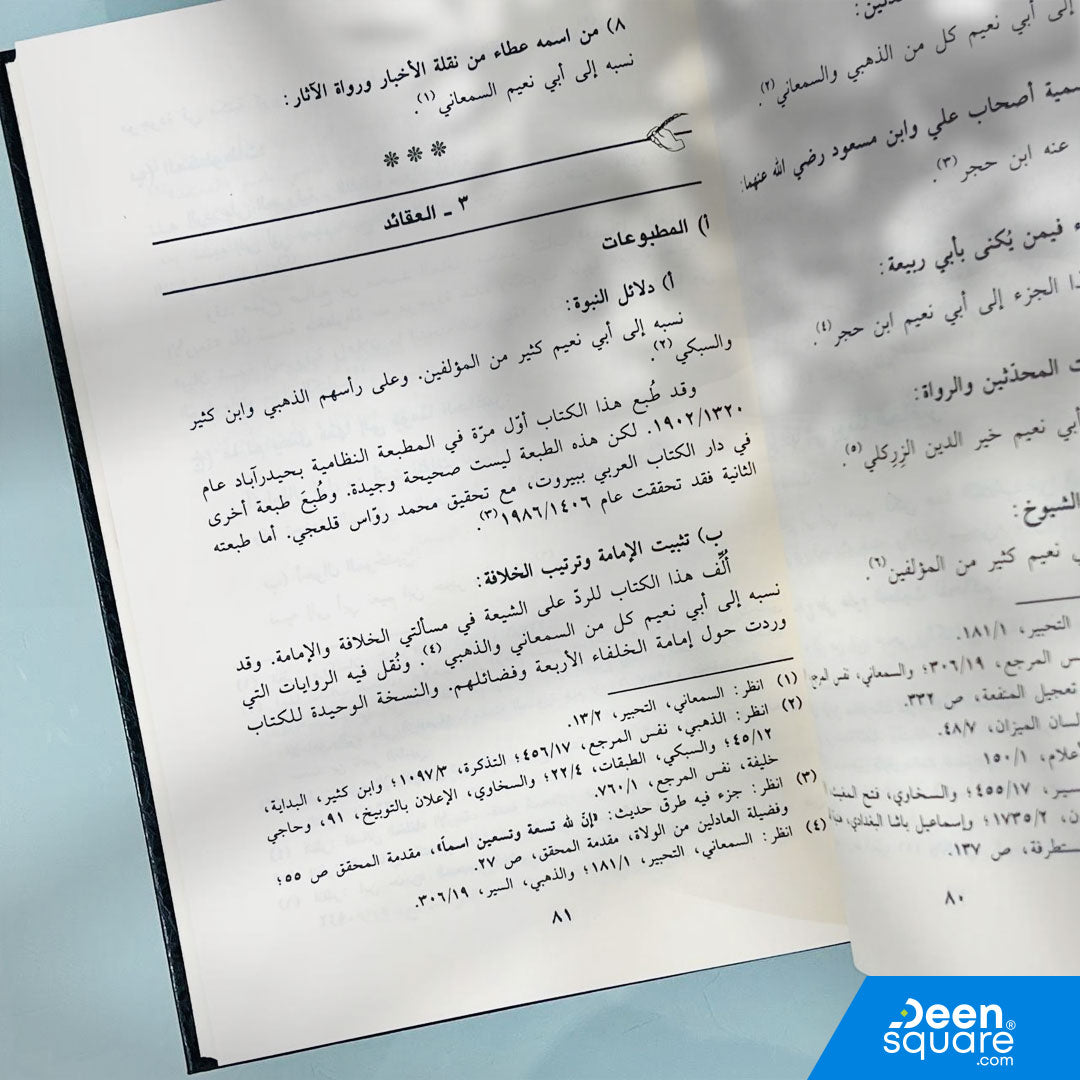 ٨) من اسمه عطاء من نقلة الأخبار ورواة الآثار:
نسبه إلى أبي نعيم السمعاني (١).
٣ ـ العقائد
أ) المطبوعات
أ) دلائل النبوة:
نسبه إلى أبي نعيم كثير من المؤلفين. وعلى رأسهم الذهبي وابن كثير
والسبكي (٢).
وقد طُبع هذا الكتاب أوّل مرّة في المطبعة النظامية بحيدرآباد عام
١٩٠٢/١٣٢٠. لكن هذه الطبعة ليست صحيحة وجيدة. وطُبِعَ طبعة أخرى
في دار الكتاب العربي ببيروت، مع تحقيق محمد روّاس قلعجي. أما طبعته
الثانية فقد تحققت عام ١٩٨٦/١٤٠٦ (٣).
ب) تثبيت الإمامة وترتيب الخلافة:
أُلِّف هذا الكتاب للردّ على الشيعة في مسألتي الخلافة والإمامة. وقد
نسبه إلى أبي نعيم كل من السمعاني والذهبي (٤). ونُقل فيه الروايات التي
وردت حول إمامة الخلفاء الأربعة وفضائلهم. والنسخة الوحيدة للكتاب
(١) انظر: السمعاني، التحبير، ١٣/٢.
(٢) انظر: الذهبي، نفس المرجع، ٤٥٦/١٧؛ التذكرة، ١٠٩٧/٣؛ وابن كثير، البداية،
٤٥/١٢؛ والسبكي، الطبقات، ٢٢/٤؛ والسخاوي، الإعلان بالتوبيخ، ٩١، وحاجي
خليفة، نفس المرجع، ٧٦٠/١.
(٣) انظر: جزء فيه طرق حديث: «إنّ لله تسعة وتسعين اسماً»، مقدمة المحقق ص ٥٥؛
وفضيلة العادلين من الولاة، مقدمة المحقق، ص ٢٧.
(٤) انظر: السمعاني، التحبير، ١٨١/١؛ والذهبي، السير، ٣٠٦/١٩.
٨١
إلى أبي نعيم كل من الذهبي والسمعاني (٢).
أصحاب علي وابن مسعود رضي الله عنهما:
عنه ابن حجر (٣).
فيمن يُكنى بأبي ربيعة:
الجزء إلى أبي نعيم ابن حجر (٤).
المحدّثين والرواة:
نعيم خير الدين الزركلي (٥).
الشيوخ:
نعيم كثير من المؤلفين (٦).
التحبير، ١٨١/١.
المرجع، ٣٠٦/١٩؛ والسمعاني، نفس المرجع،
تعجيل المنفعة، ص ٣٣٢.
الميزان، ٤٨/٧.
١٥٠/١
٤٥٥/١٧؛ والسخاوي، فتح
١٧٣٥/٢؛ وإسماعيل باشا البغدادي،
ص ١٣٧.
٨٠
Deen
square®
.com